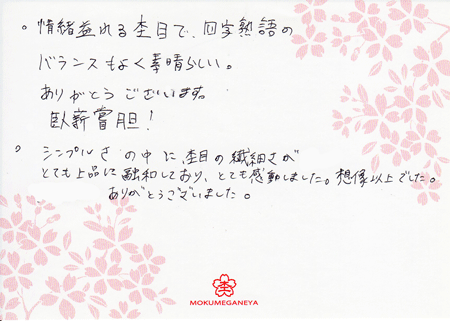 。情緒溢れる杢目で、四字熟語の
バランスもよく素晴らしい。
ありがとうございます。
臥薪嘗胆!
。シンプルさの中に、杢目の繊細さが
とても上品に融和しており、とても感動しました。想像以上でした。
ありがとうございました。
杢
MOKUMEGANEYA